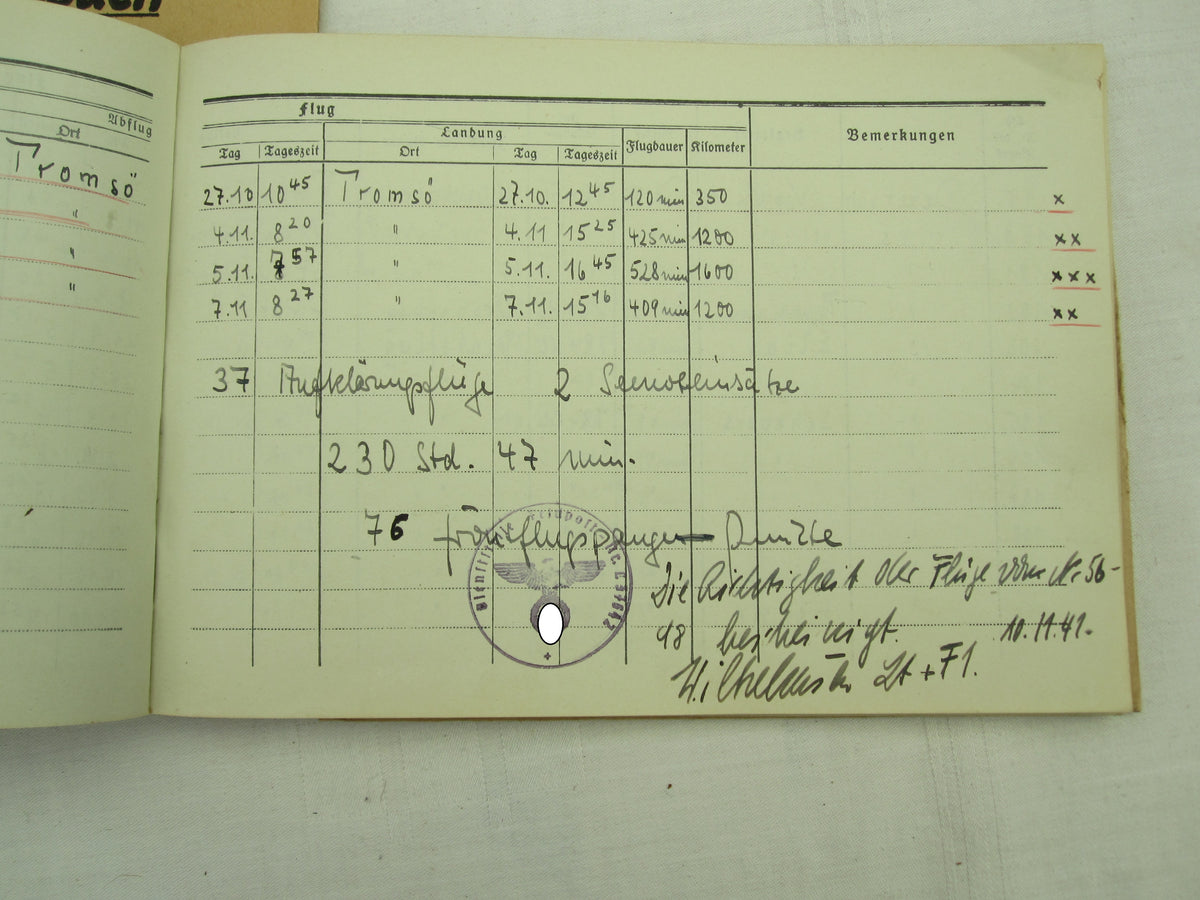 Abflug
Ort
Tromsö
"
"
"
Flug
Landung
Flugdauer Kilometer Bemerkungen
Tag Tageszeit Ort Tag Tageszeit
27.10 10 45 Tromsö 27.10. 12 45 120 min 350 x
4.11. 8 20 " 4.11 15 25 425 min 1200 xx
5.11. 7 57 " 5.11. 16 45 528 min 1600 xxx
7.11 8 27 " 7.11. 15 16 409 min 1200 xx
37 Aufklärungsflüge 2 Seenoteinsätze
230 Std. 47 min.
76 Frontflugspangen- Punkte
Dienststelle Feldpost Nr.
Die Richtigkeit der Flüge Nr 56-
98 bescheinigt. 10.11.41.
Lt + F1.